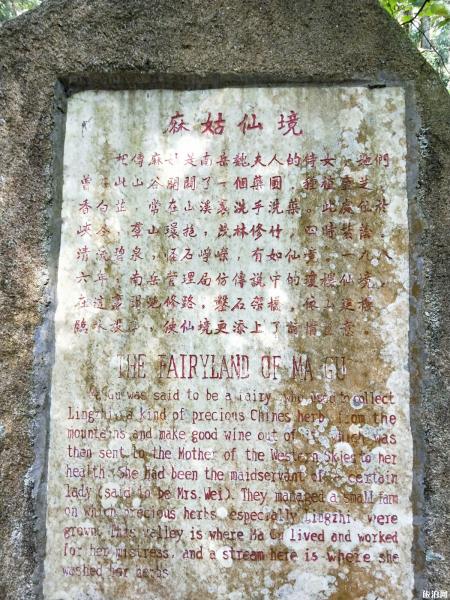 麻姑仙境
把傳麻姑是南岳魏夫人的侍女，她們
曾在此山谷開闢了一個藥園，種植靈芝
香白芷，常在山溪裏洗手洗藥。此處位於
峽谷，羣山環抱，茂林修竹，四時蔭
清流碧泉，怪石崢嶸，有如仙境。一九八
六年，南岳管理局仿傳說中的瓊樓仙境，
在這裏闢地修路，鑿石架橋，
使仙境更添上了
THE FAIRYLAND OF MA GU
Ma Gu was said to be a fairy who used to collect
Lingzhi, a kind of precious Chines herb from the
mountains and make good wine out of which was
than sent to the Mother of the Western Skies to her
health. She had been the maidservant of a certain
lady (said to be Mrs. Wei). They managed a small fam
on which precious herbs, especially Lingzhi, were
grown. This valley is where Ma Gu lived and worked
for her mistress, and a stream here is where she
washed her herbs
旅泊网